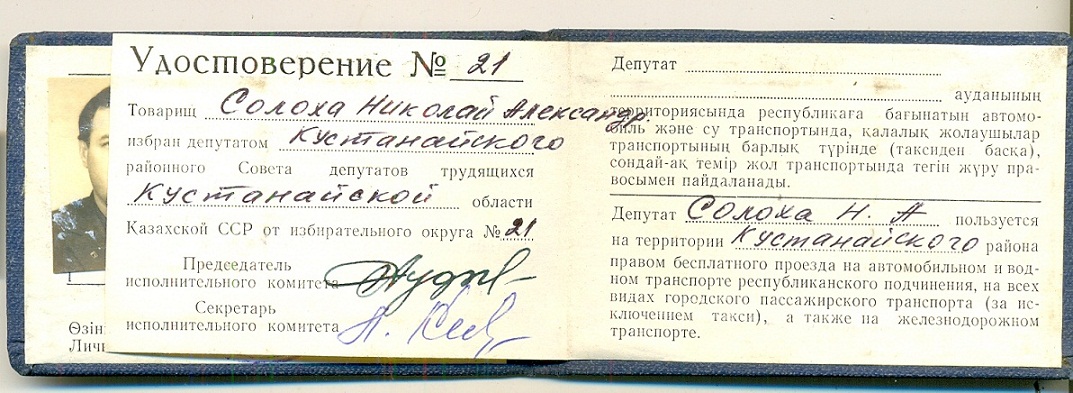 Удостоверение № 21
Товарищ Солоха Николай Александр.
избран депутатом Кустанайского
районного Совета депутатов трудящихся
Кустанайской области
Казахской ССР от избирательного округа № 21
Председатель
исполнительного комитета
Секретарь
исполнительного комитета
Өзін
Личн
Депутат
ауданының
территориясында республикаға бағынатын автомо-
биль және су транспортында, қалалық жолаушылар
транспортының барлық түрінде (таксиден басқа),
сондай-ақ темір жол транспортында тегін жүру пра-
восымен пайдаланады.
Депутат Солоха Н. А пользуется
на территории Кустанайского района
правом бесплатного проезда на автомобильном и вод-
ном транспорте республиканского подчинения, на всех
видах городского пассажирского транспорта (за ис-
ключением такси), а также на железнодорожном
транспорте.